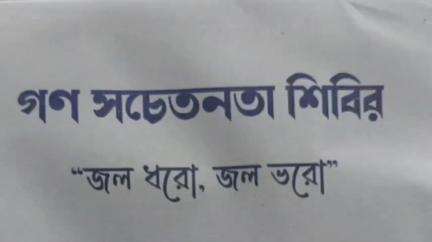 গণ সচেতনতা শিবির
“জল ধরো, জল ভরো”